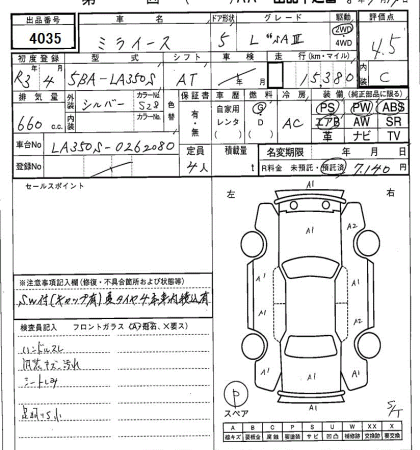 出品番号 車名 ドア形状 グレード 駆動 評価点
4035 ミライース 5 L "SAⅢ 2WD 4WD 4.5
初度登録 型式 シフト 車検 走行(km・マイル) 内装
R3年4月 5BA-LA350S AT 15,380 C
排気量 外装 カラーNo. 色替 保証書 車歴 燃料 冷房 装備(純正部品に限る)
660 c.c. シルバー S28 有・無 自家用 レンタ G D AC PS PW ABS
内装 カラーNo. エアB AW SR
革 ナビ TV
車台No LA350S-0262080 定員 積載量 名変期限 年 月 日
登録No 4人 t R料金 未預託・預託済 7,140円
セールスポイント
左 右
A1
A1 A2
A1 A1 A1
A1 A1
A2 A1
A1
※注意事項記入欄(修復・不具合箇所および状態等)
検査員記入 フロントガラス (A)飛石、X要ス)
ハンドルスレ
シート
スペア
S/T
A B C P S U W X XX
線キズ 要板金 腐蝕 要塗装 サビ 凹凸 補修跡 交換跡 要交換